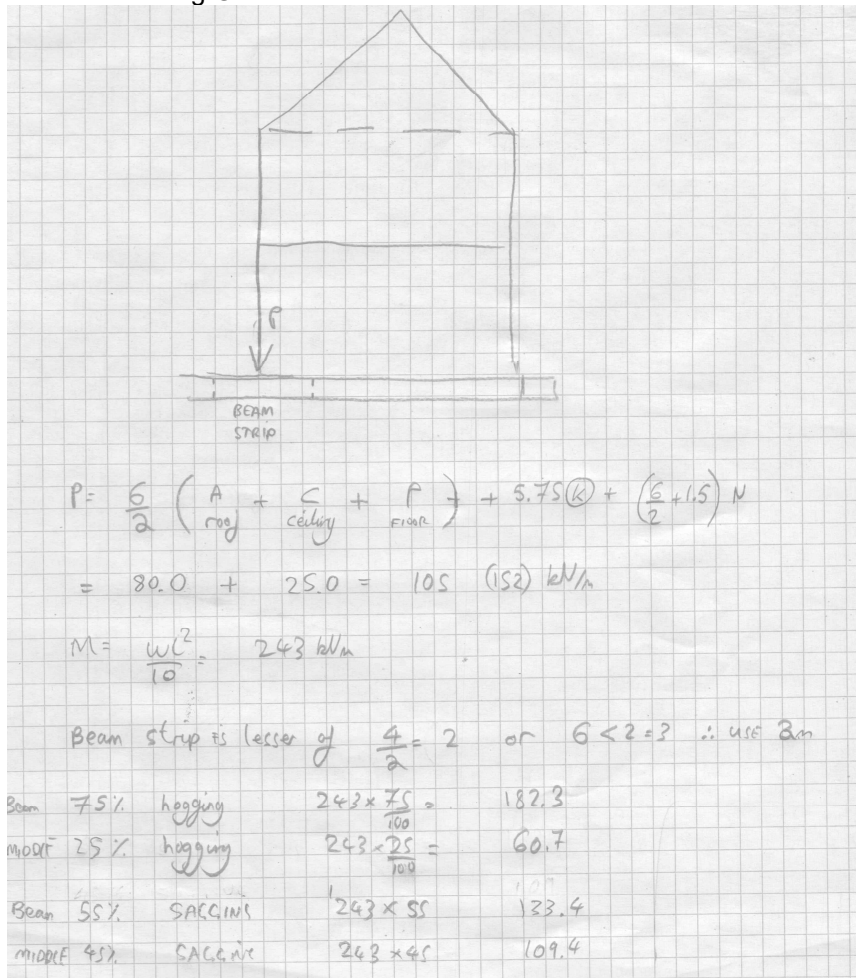 P
BEAM
STRIP
P = 6/2 ( A roof + C ceiling + P FLOOR ) + 5.75 (K) + (6/2 + 1.5) N
= 80.0 + 25.0 = 105 (152) kN/m
M = wl²/10 = 243 kNm
Beam strip is lesser of 4/2 = 2 or 6 < 2 = 3 ∴ USE 2m
Beam 75% hogging 243 × 75/100 = 182.3
MIDDLE 25% hogging 243 × 25/100 = 60.7
Beam 55% SAGGING 243 × 55 133.4
MIDDLE 45% SAGGING 243 × 45 109.4